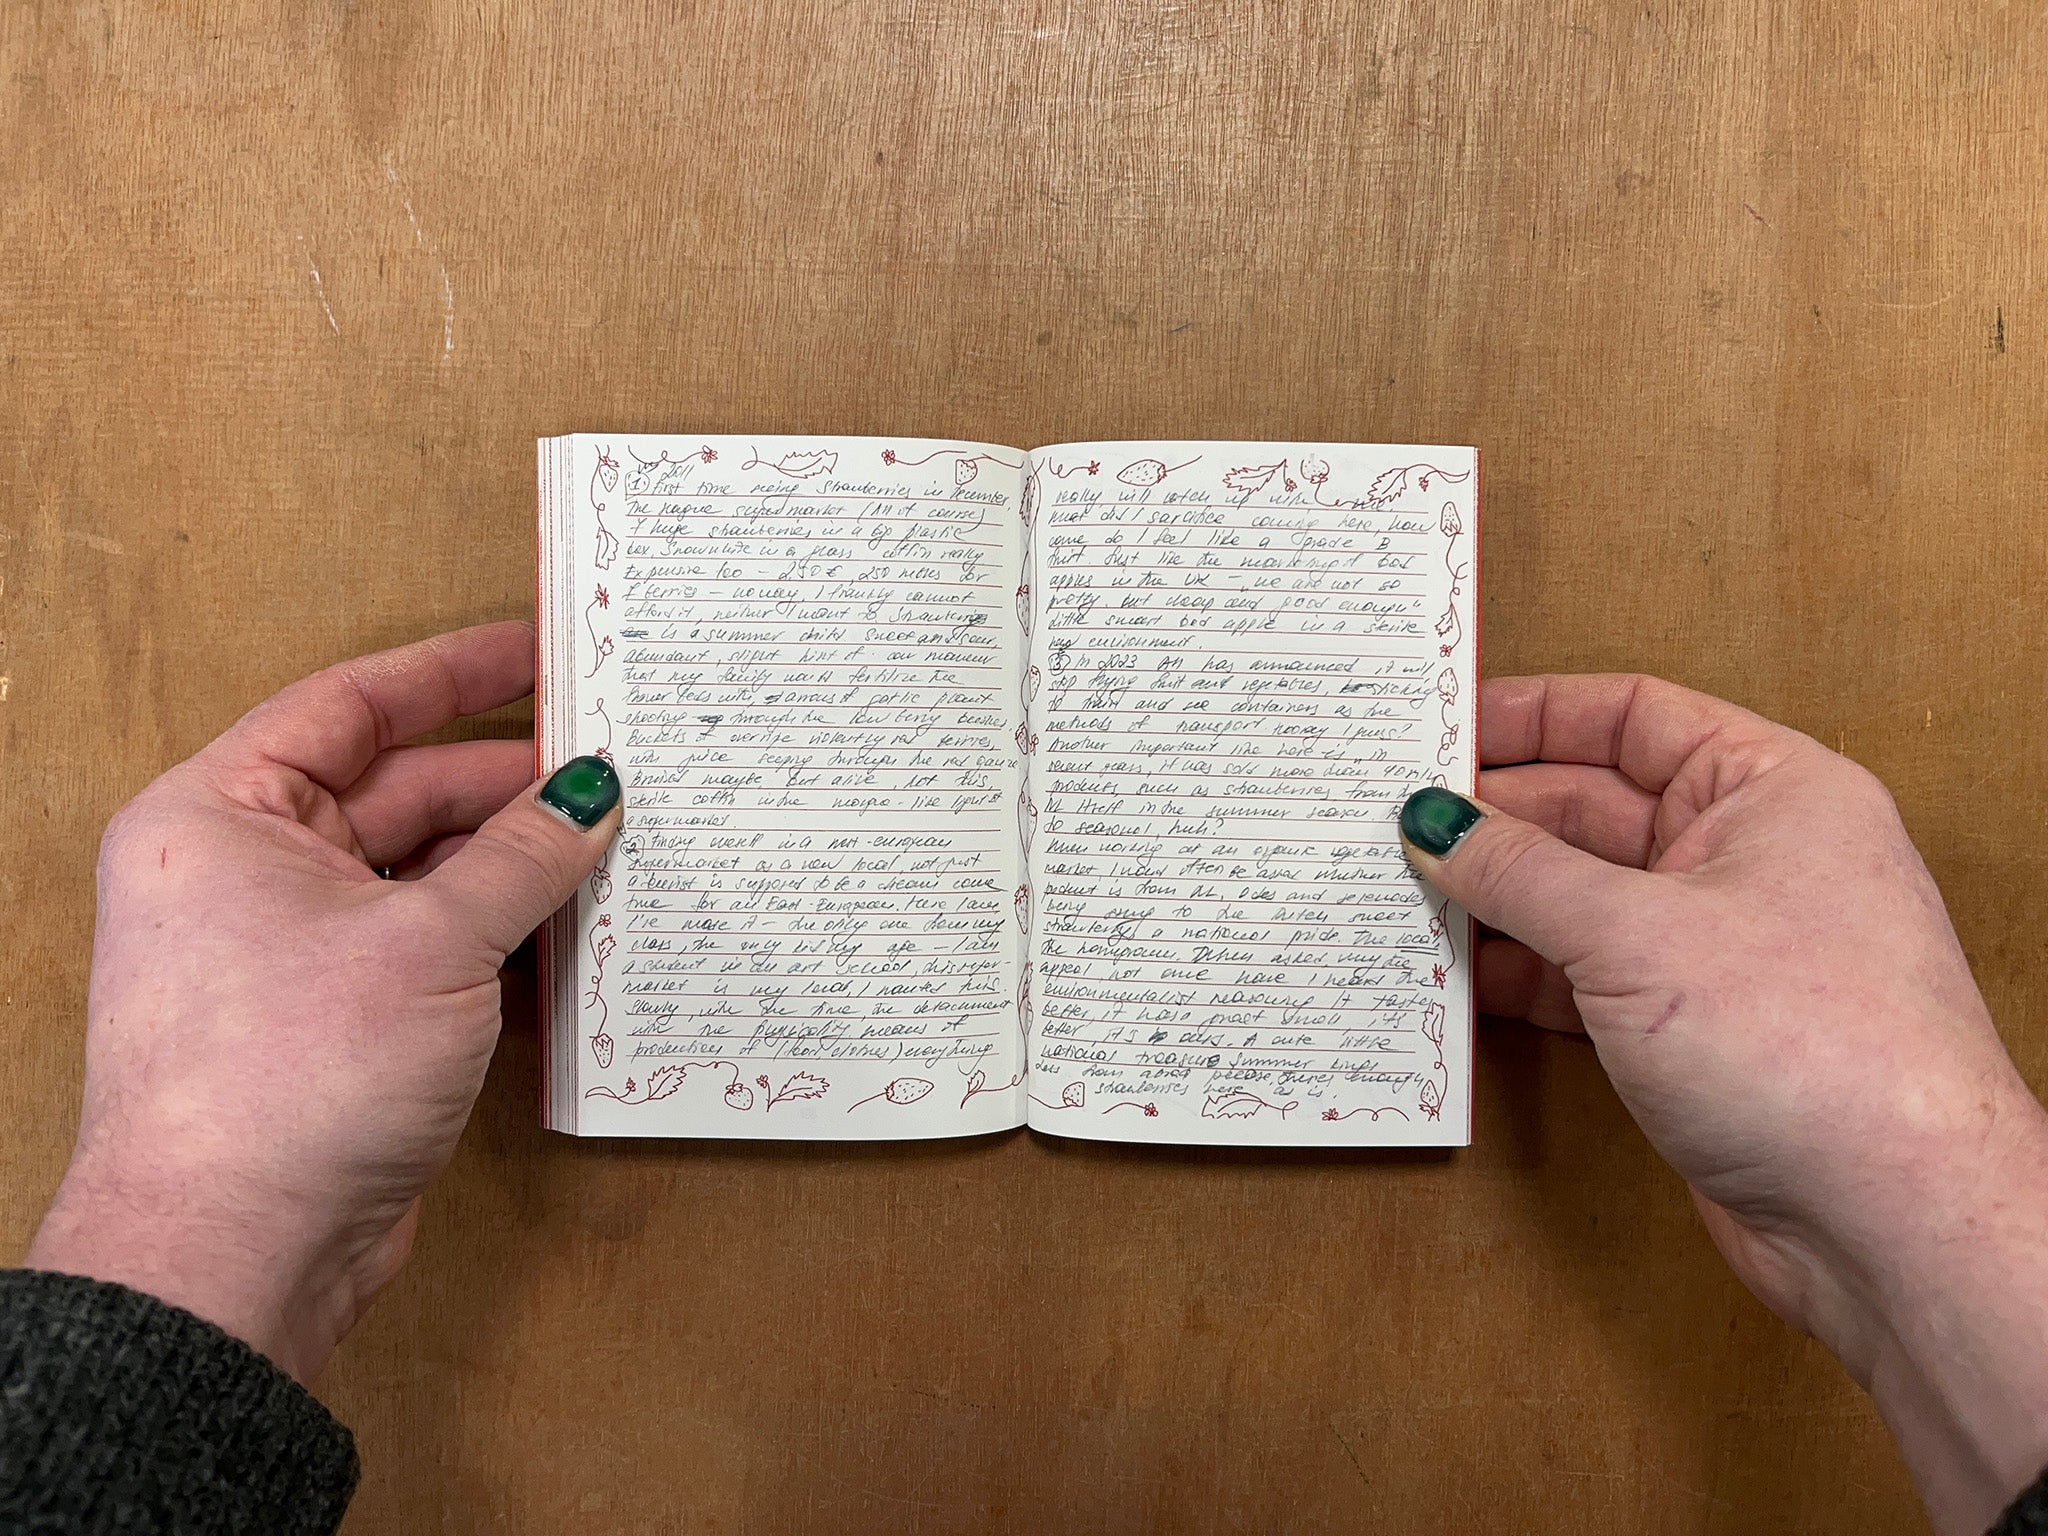 2011
1 First time seeing strawberries in December,
The Hague supermarket (AH of course)
7 huge strawberries in a big plastic
box, Snowwhite in a glass coffin really
Expensive too – 2.50 €, 250 for
7 berries – no way, I frankly cannot
afford it, neither I want to. Strawberries
is a summer child sweet and sour,
abundant, slight hint of cow manure
that my family would fertilize the
flower beds with, aroma of garlic plant
shooting through the low berry bushes.
Buckets of overripe violently red berries,
with juice seeping through the red gauze
Bruised maybe, but alive, not this,
sterile coffin in the morgue-like light of
a supermarket.
2 Finding oneself in a West-European
supermarket as a new local, not just
a tourist is supposed to be a dream come
true for an East-European. Here I am,
I've made it – the only one from my
class, the only kid my age – I am
a student in an art school, this super-
market is my local, I wanted this.
Slowly, with the time, the detachment
with the physicality means of
productions of (food clothes) everything
really will catch up with me.
What did I sacrifice coming here, how
come do I feel like a grade B
fruit. Just like the marketing of bad
apples in the UK – "we are not so
pretty, but cheap and good enough"
Little smart bad apple in a sterile
environment.
3 In 2023 AH has announced, it will
stop flying fruit and vegetables, sticking
to train and sea containers as the
methods of transport hooray I guess?
Another important line here is "in
recent years, it has sold more than 40
products, such as strawberries from the
NL itself in the summer season.
to seasonal, huh?
When working at an organic vegetable
market I would often be asked whether the
product is from NL. Odes and serenades
being sung to the Dutch sweet
strawberry, a national pride. The local,
the homegrown. When asked, why the
appeal, not once have I heard the
environmentalist reasoning. It tastes
better, it has a sweet smell, it's
better, it's ours. A cute little
national treasure summer
from abroad please, there's enough
strawberries here as is.